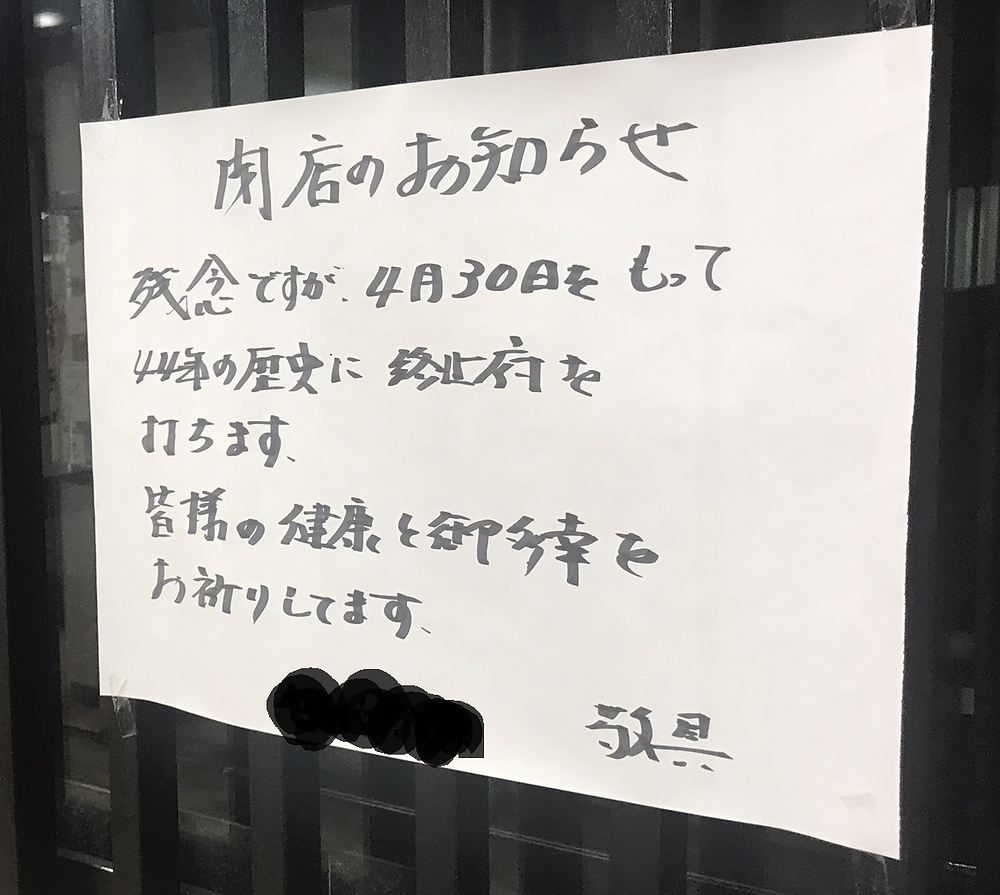 閉店のお知らせ
残念ですが、4月30日をもって
44年の歴史に終止府を
打ちます、
皆様の健康と御多幸を
お祈りしてます、
敬具